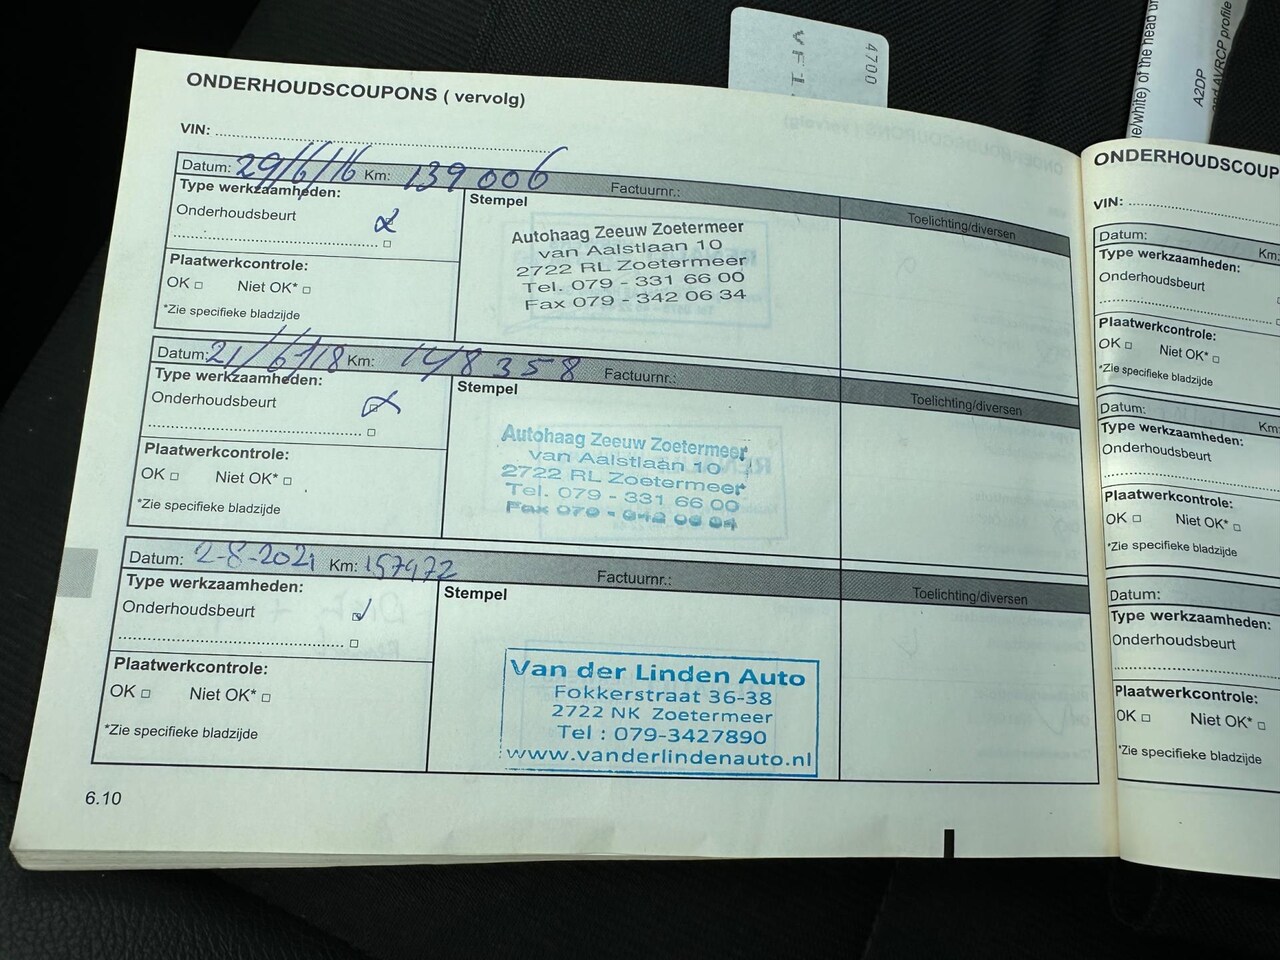 ONDERHOUDSCOUPONS ( vervolg)
VIN:
Datum: 29/6/16 Km: 139 006 Factuurnr.:
Type werkzaamheden:
Onderhoudsbeurt
Plaatwerkcontrole:
OK □ Niet OK* □
*Zie specifieke bladzijde
Stempel
Autohaag Zeeuw Zoetermeer
van Aalstlaan 10
2722 RL Zoetermeer
Tel. 079 - 331 66 00
Fax 079 - 342 06 34
Toelichting/diversen
Datum: 21/6/18 Km: 148358 Factuurnr.:
Type werkzaamheden:
Onderhoudsbeurt
Plaatwerkcontrole:
OK □ Niet OK* □
*Zie specifieke bladzijde
Stempel
Autohaag Zeeuw Zoetermeer
van Aalstlaan 10
2722 RL Zoetermeer
Tel. 079 - 331 66 00
Fax 079 - 342 06 34
Toelichting/diversen
Datum: 2-8-2021 Km: 157472 Factuurnr.:
Type werkzaamheden:
Onderhoudsbeurt
Plaatwerkcontrole:
OK □ Niet OK* □
*Zie specifieke bladzijde
Stempel
Van der Linden Auto
Fokkerstraat 36-38
2722 NK Zoetermeer
Tel : 079-3427890
www.vanderlindenauto.nl
Toelichting/diversen
6.10
4700
VF1
of the head
A2DP
AVRCP profile
ONDERHOUDSCOUP
VIN:
Datum: Km:
Type werkzaamheden:
Onderhoudsbeurt
Plaatwerkcontrole:
OK □ Niet OK* □
*Zie specifieke bladzijde
Datum: Km:
Type werkzaamheden:
Onderhoudsbeurt
Plaatwerkcontrole:
OK □ Niet OK* □
*Zie specifieke bladzijde
Datum:
Type werkzaamheden:
Onderhoudsbeurt
Plaatwerkcontrole:
OK □ Niet OK* □
*Zie specifieke bladzijde